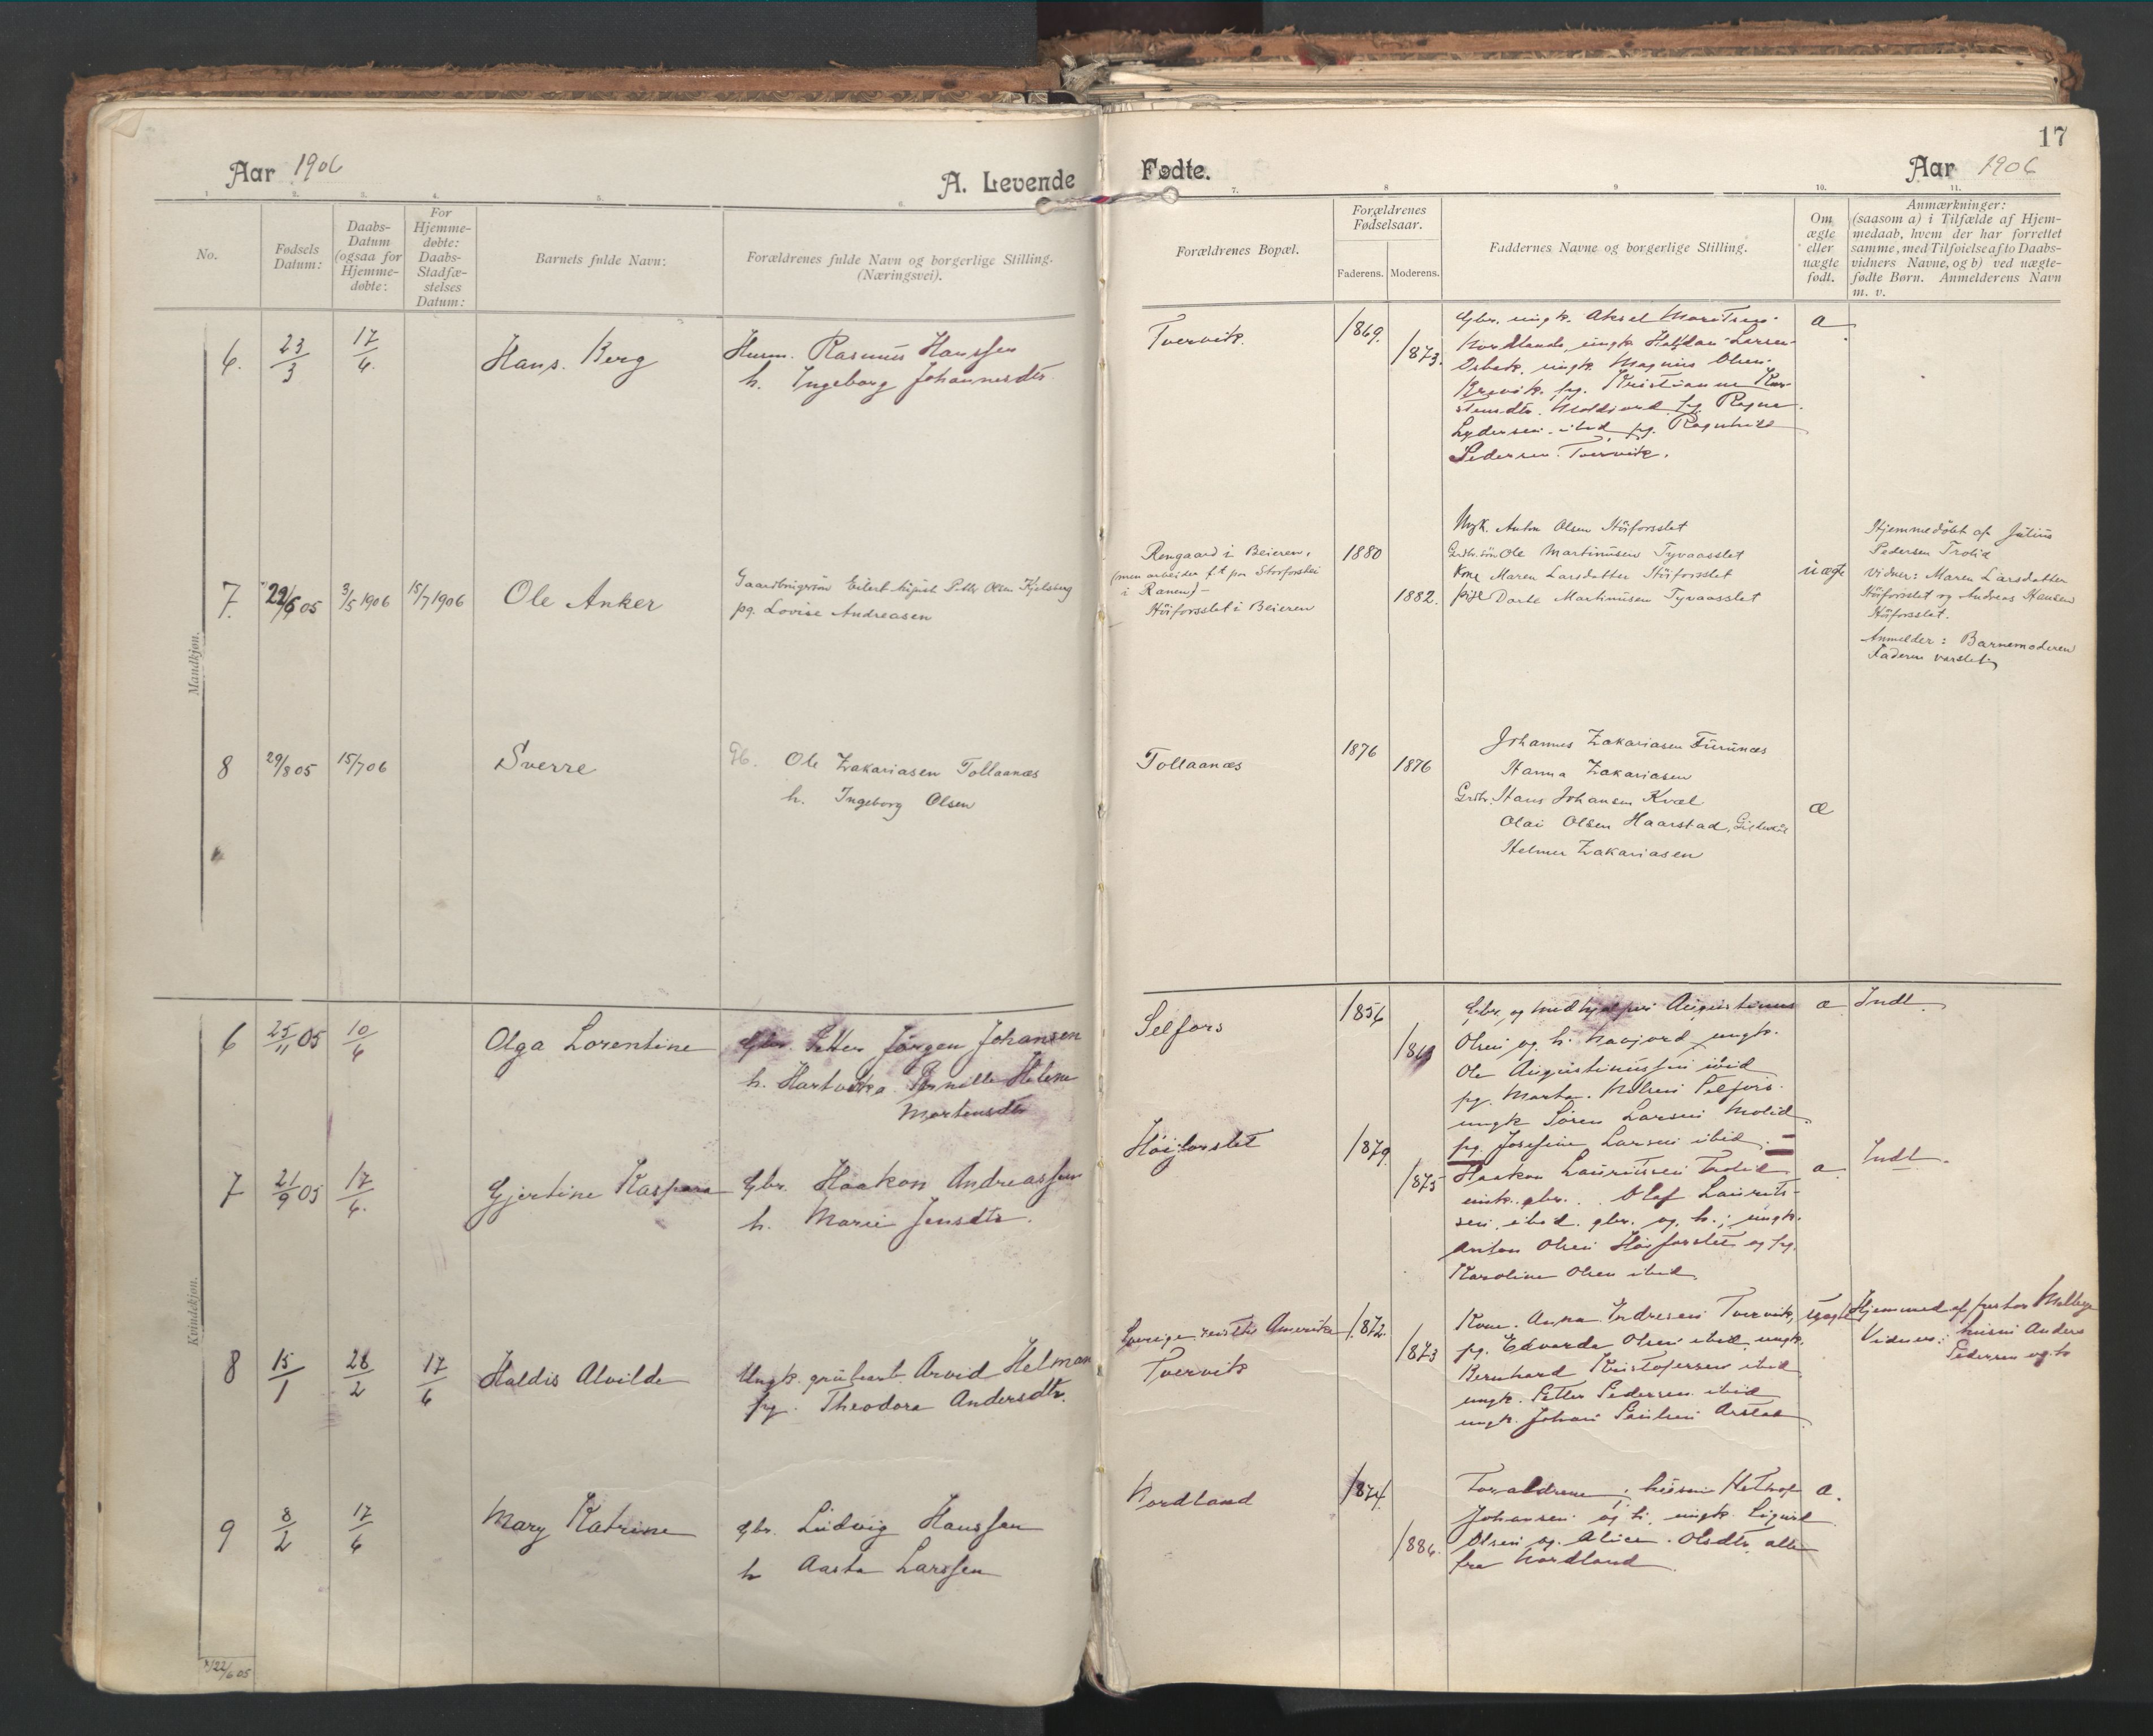 17
Aar 1906
A. Levende
Fødte.
Aar 1906
1. 2. 3. 4. 5. 6. 7. 8 9 10. 11.
No.
Fødsels Datum:
Daabs-
Datum
(ogsaa for
Hjemme-
døbte:
For
Hjemme-
døbte:
Daabs-
Stadfæ-
stelses
Datum:
Barnets fulde Navn:
Forældrenes fulde Navn og borgerlige Stilling.
(Næringsvei).
Forældrenes Bopæl.
Forældrenes
Fødselsaar.
Faderens. Moderens.
Faddernes Navne og borgerlige Stilling.
Om
ægte
eller
uægte
født.
Anmærkninger:
(saasom a) i Tilfælde af Hjem-
medaab, hvem der har forrettet
samme, med Tilføielse af to Daabs-
vidners Navne, og b) ved uægte-
fødte Børn. Anmelderens Navn
m. v.
Mandkjøn.
6. 23/3 17/6.
Hans. Berg
Husm. Rasmus Hanssen
h. Ingeborg Johannesdtr.
Tvervik.
1869.
1873.
Gbr. ungk. Aksel Moritsen.
Nordland, ungk. Halfdan Larsen
Osbak, ungk. Magnus Olsen
Brevik. pg. Kristianne Kar-
stensdtr. Moldjord pg. Ragna
Lydersen ibid pg. Ragnhild
Pedersen. Tvervik.
æ
7. 22/6 05 3/5 1906 15/7 1906
Ole Anker
Gaardbrugersøn Eilert August Petter Olsen Kjelsberg
pg. Lovise Andreasen
Rengaard i Beieren,
(men arbeider f.t. paa Storforshei
i Ranen) -
Høiforsslet i Beieren
1880
1882.
Ungk. Anton Olsen Høiforsslet
Grdbr.søn Ole Martinusen Tyvaasslet
Kone Maren Larsdatter Høiforsslet
pige Dorte Martinusen Tyvaasslet
uægte
Hjemmedøbt af Julius
Pedersen Trolid
Vidner: Maren Larsdatter
Høiforsslet og Andreas Hansen
Høiforsslet.
Anmelder: Barnemoderen
Faderen
8 29/8 05 15/7 06
Sverre
Gb. Ole Zakariasen Tollaanæs
h. Ingeborg Olsen
Tollaanæs
1876
1876
Johannes Zakariasen Furunæs
Hanna Zakariasen
Grdbr. Hans Johansen Kvæl
Olai Olsen Haarstad,
Helmer Zakariasen
æ
Kvindekjøn.
6 25/11 05 10/6
Olga Lorentine
Gbr. Petter Jørgen Johansen
h. Hartvikka Pernille Helene
Mortensdtr
Selfors
1856
Gbr. og medhjælper Augustinus
Olsen og h. Navjord ungk.
Ole Augustinussen ibid
pg. Marta. Nilsen Selfors.
ungk Søren Larsen Molid
pg. Josefine Larsen ibid.
æ
Indl.
7 21/9 05 17/6.
Gjertine Kaspara
Gbr. Haakon Andreassen
h. Marie Jensdtr.
Høiforslet
1879
1875
Haakon Lauritsen Trolid
enk. gbr. Olaf Laurits-
sen ibid. gbr. og h.; ungk.
Anton Olsen Høiforslet og pg.
Karoline Olsen ibid
æ
Indl.
8 15/1 28/2 17/6
Haldis Alvilde
Ungk. grubearb. Arvid Helman
pg. Theodora Andersdtr.
Sverige, reist til Amerika
Tvervik
1872.
1873
Kone. Anna Andresen Tvervik,
pg. Edvarda Olsen ibid, ungk.
Bernhard Kristofersen ibid
ungk. Petter Pedersen ibid
ungk. Johan Paulsen Arstad
uægte
Hjemmed. af
Vidner: husm Anders
Pedersen og h
9 8/2 17/6
Mary Katrine
gbr. Ludvig Hanssen
h Aasta Larssen
Nordland
1874
1884.
Forældrene; husm
Johansen og h. ungk. Sigurd
Olsen og Alice. Olsdtr. alle
fra Nordland
æ.
22/6 05